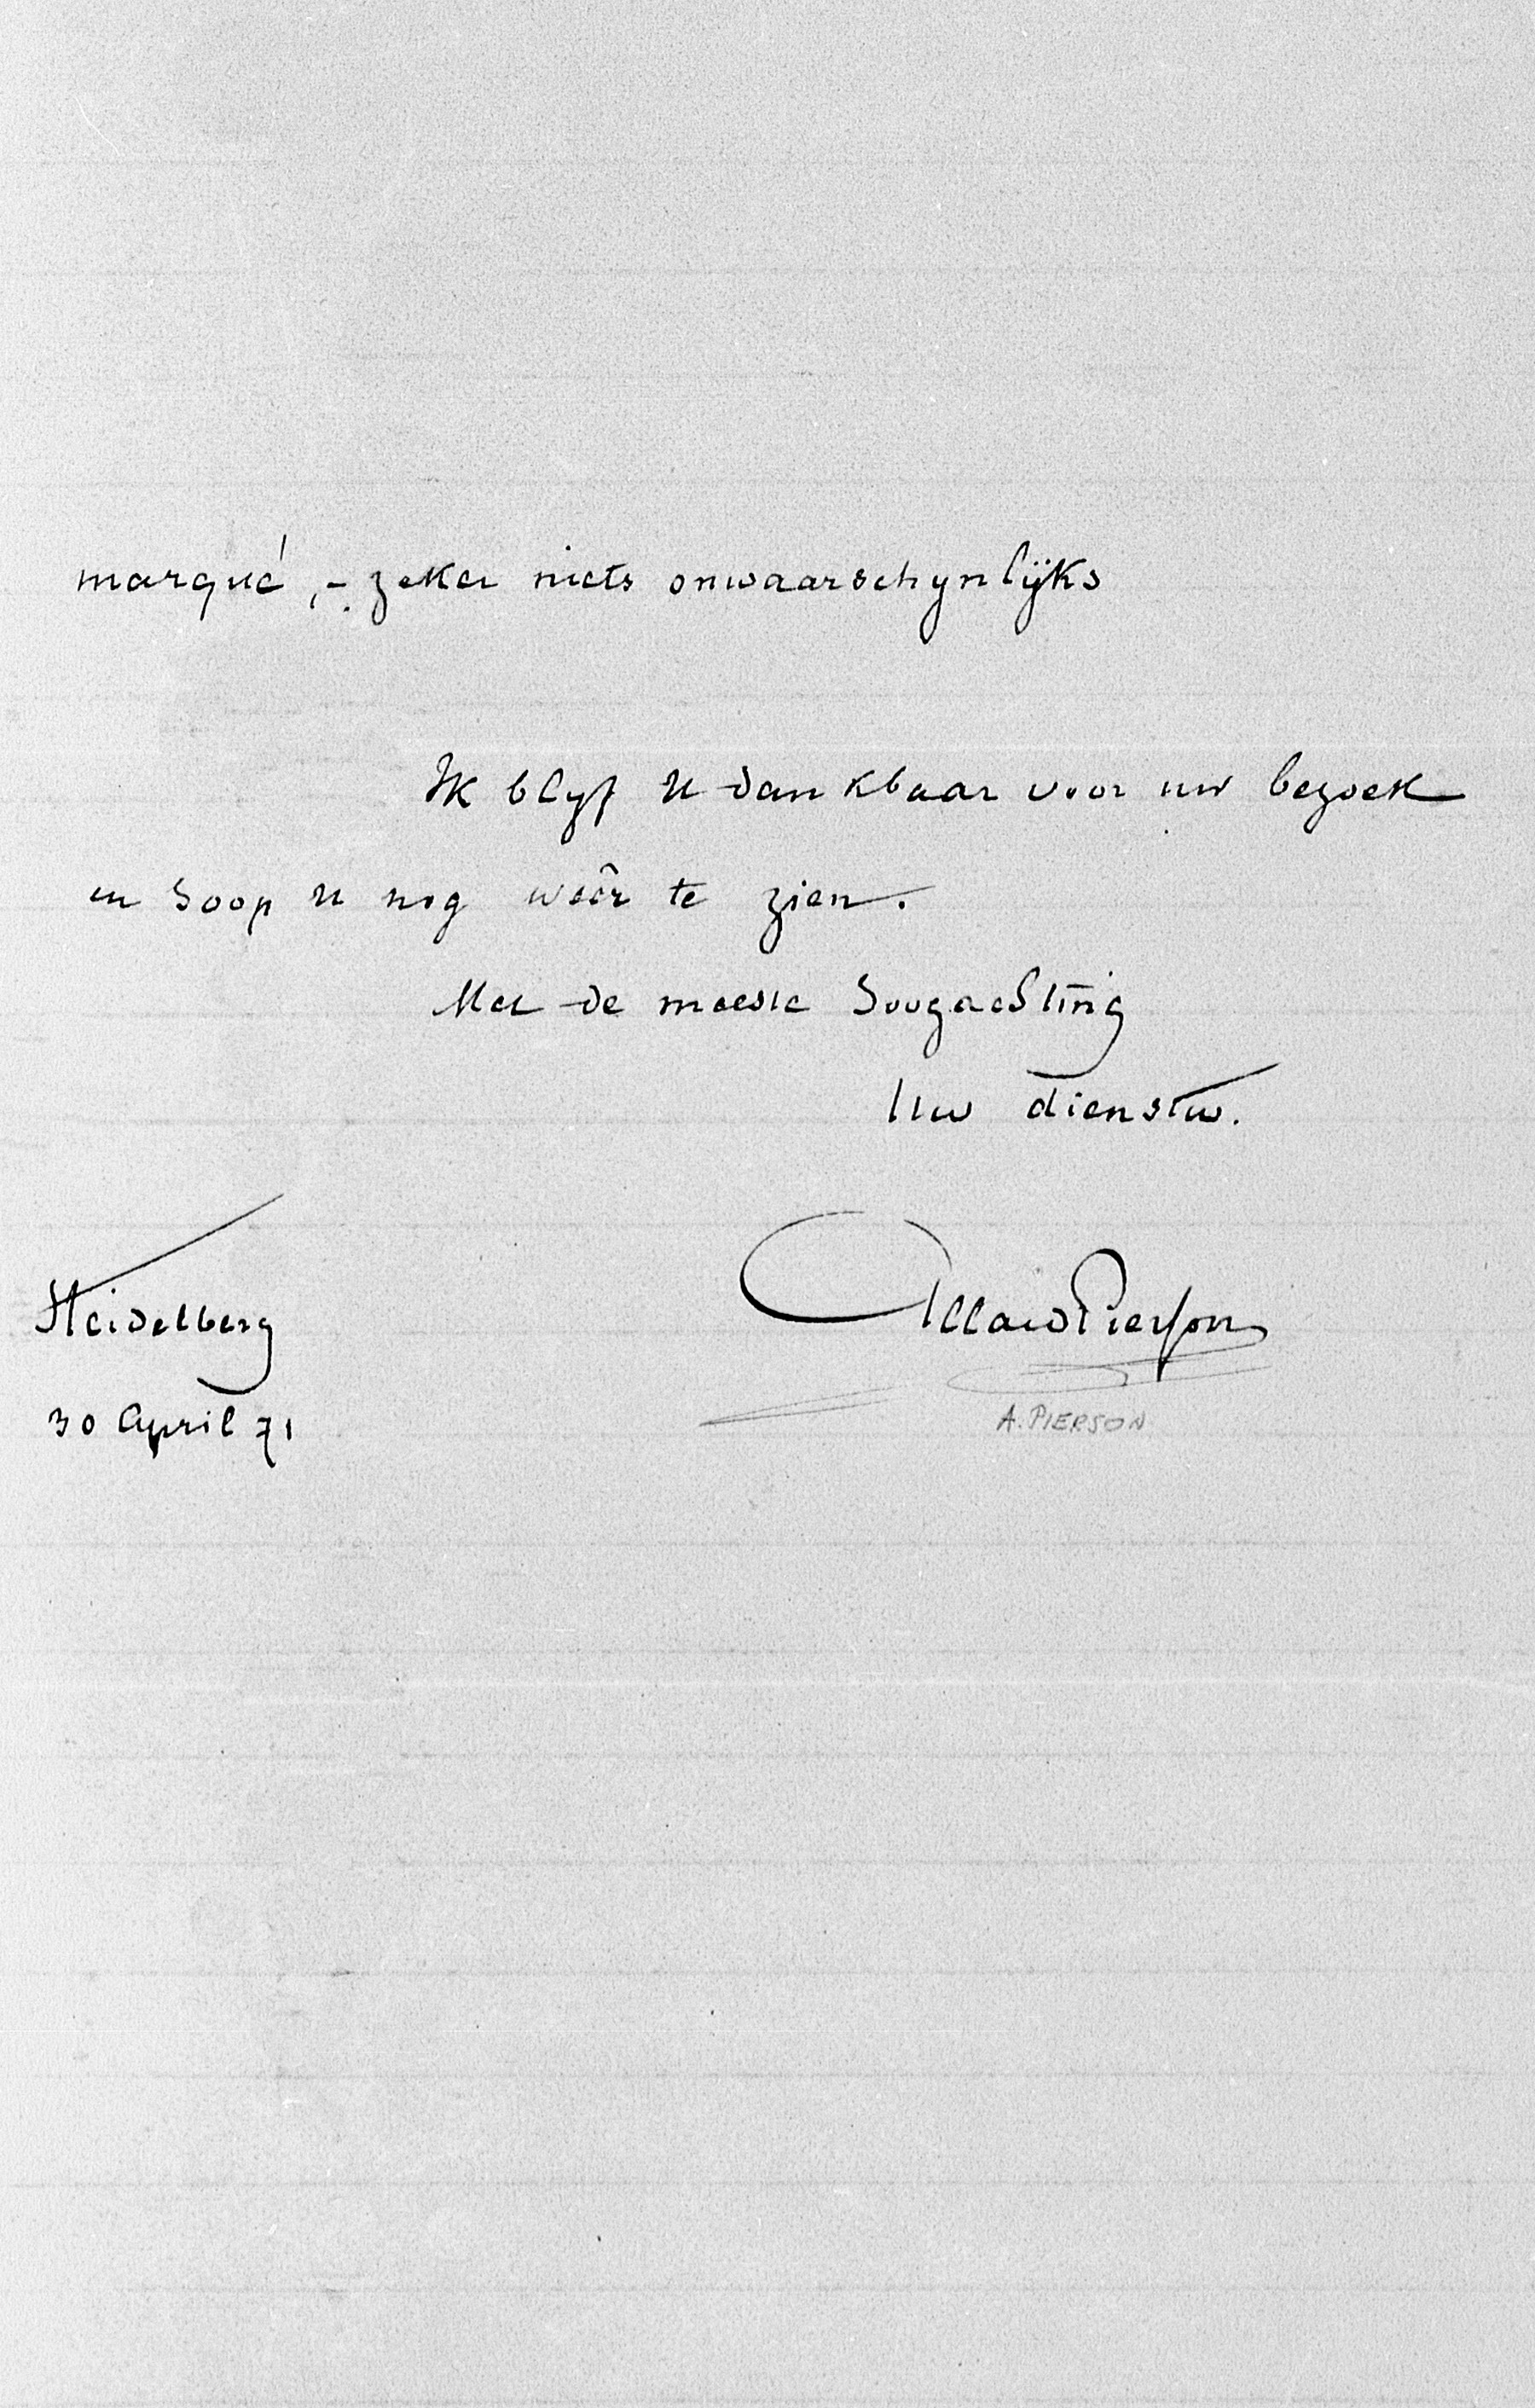 marqué, - zeker niets onwaarschynlijks
Ik blyf U dankbaar voor uw bezoek
en hoop U nog weêr te zien.
Met de meeste hoogachting
Uw dienstw.
Allard Pierson
Heidelberg
A. PIERSON
30 April 71